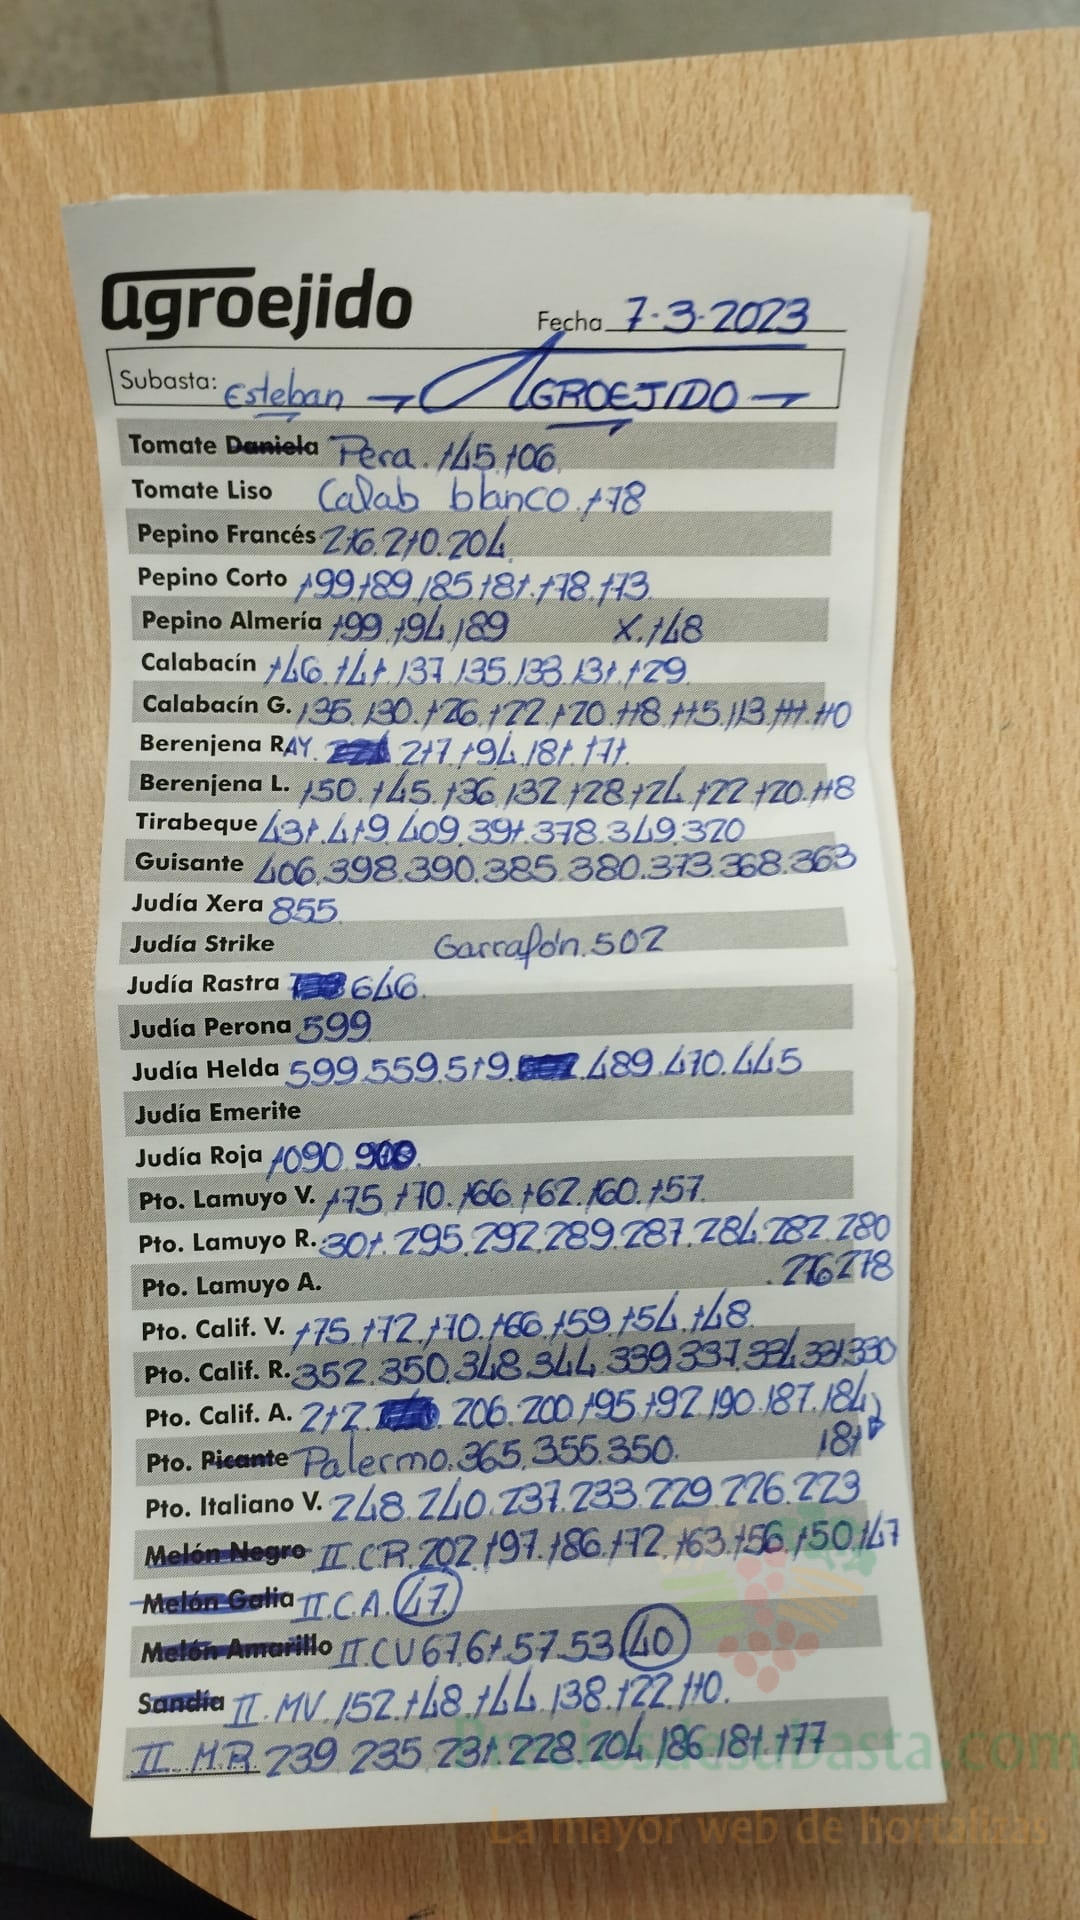 agroejido
Fecha 7-3-2023
Subasta: Esteban → AGROEJIDO →
Tomate Daniela Pera. 145.106.
Tomate Liso Calab blanco. 178
Pepino Francés 216.210.204.
Pepino Corto 199.189.185.181.178.173.
Pepino Almería 199.194.189 X.148
Calabacín 146.141.137.135.133.131.129.
Calabacín G. 135.130.126.122.120.118.115.113.111.110
Berenjena RAY. 217.194.181.171.
Berenjena L. 150.145.136.132.128.124.122.120.118
Tirabeque 431.419.409.391.378.349.320
Guisante 406.398.390.385.380.373.368.363
Judía Xera 855.
Judía Strike Garrafón.502
Judía Rastra 646.
Judía Perona 599
Judía Helda 599.559.519. .489.470.445
Judía Emerite
Judía Roja 1090.
Pto. Lamuyo V. 175.170.166.162.160.157.
Pto. Lamuyo R. 301.295.292.289.287.284.282.280
Pto. Lamuyo A. .276278
Pto. Calif. V. 175.172.170.166.159.154.148.
Pto. Calif. R. 352.350.348.344.339.337.334.331.330
Pto. Calif. A. 212. .206.200.195.192.190.187.184
Pto. Picante Palermo.365.355.350. 181
Pto. Italiano V. 248.240.237.233.229.226.223
Melón Negro II.CR.202.197.186.172.163.156.150.147
Melón Galia II.C.A.47.
Melón Amarillo II.CV 67.61.57.53.40
Sandía II.MV.152.148.144.138.122.110.
II.M.R.239.235.231.228.204.186.181.177
Preciosdesubasta.com
La mayor web de hortalizas